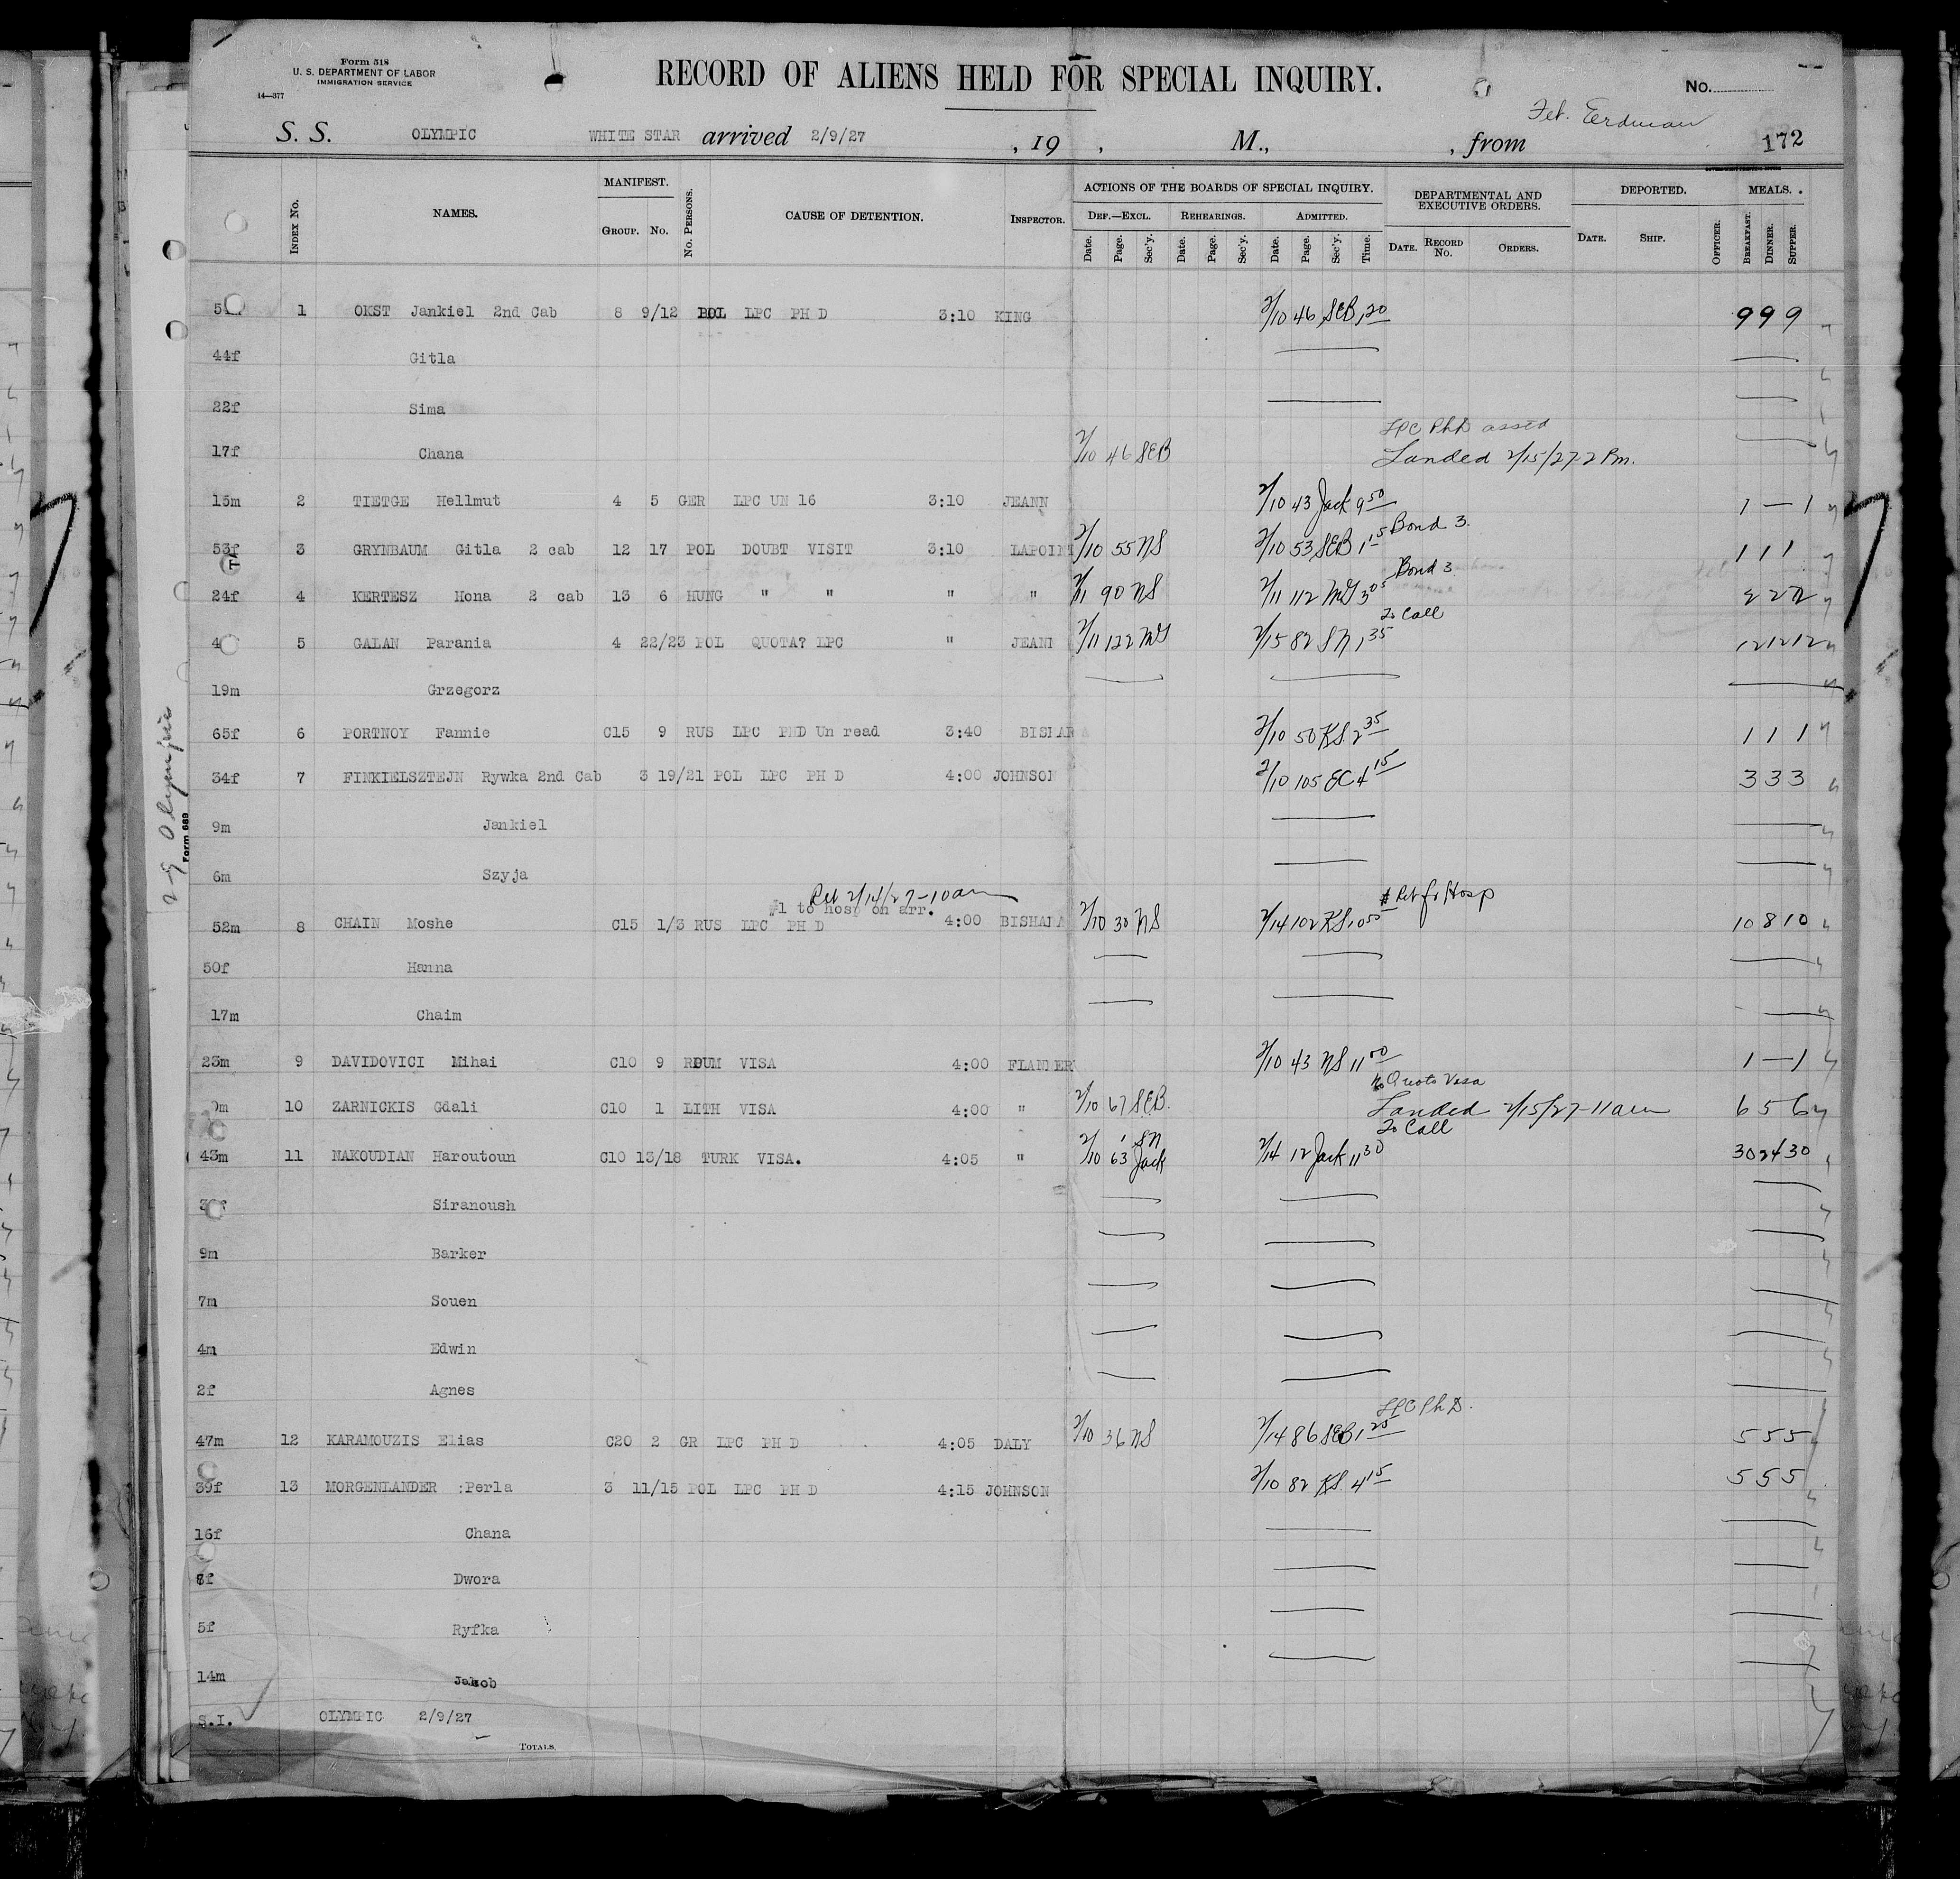 Form 518
U. S. DEPARTMENT OF LABOR
IMMIGRATION SERVICE
14—377
RECORD OF ALIENS HELD FOR SPECIAL INQUIRY.
No.
S. S. OLYMPIC WHITE STAR arrived 2/9/27 , 19 , M., , from 172
INDEX No. NAMES. MANIFEST. GROUP. No. No. PERSONS. CAUSE OF DETENTION. INSPECTOR.
ACTIONS OF THE BOARDS OF SPECIAL INQUIRY. DEF.—EXCL. REHEARINGS. ADMITTED.
Date. Page. Sec'y. Date. Page. Sec'y. Date. Page. Sec'y. Time.
DEPARTMENTAL AND EXECUTIVE ORDERS. DATE. RECORD No. ORDERS.
DEPORTED. DATE. SHIP. OFFICER.
MEALS. BREAKFAST. DINNER. SUPPER.
1 OKST Jankiel 2nd Cab 8 9/12 POL LPC PH D 3:10 KING 2/10 46 SEB 1 20 9 9 9
44f Gitla
22f Sima
LPC PhD
17f Chana 2/10 46 SEB Landed 2/15/27 2 Pm.
15m 2 TIETGE Hellmut 4 5 GER LPC UN 16 3:10 JEANN 2/10 43 Jack 9 50 1 — 1
Bond 3
53f 3 GRYNBAUM Gitla 2 cab 12 17 POL DOUBT VISIT 3:10 LAPOINT 2/10 55 NS 2/10 53 SEB 1 15 1 1 1
Bond 3
24f 4 KERTESZ Hona 2 cab 13 6 HUNG " " " " 2/11 90 NS 2/11 112 McG 3 05 2 2 2
To Call
5 GALAN Parania 4 22/23 POL QUOTA? LPC " JEANN 2/11 122 McG 2/15 82 SN 1 35 12 12 12
19m Grzegorz
65f 6 PORTNOY Fannie C15 9 RUS LPC PHD Un read 3:40 BISHARA 2/10 50 KS 2 35 1 1 1
34f 7 FINKIELSZTEJN Rywka 2nd Cab 3 19/21 POL LPC PH D 4:00 JOHNSON 2/10 105 EC 4 15 3 3 3
9m Jankiel
6m Szyja
Ret 2/14/27-10am
#1 to hosp on arr. # Ret fr Hosp
52m 8 CHAIN Moshe C15 1/3 RUS LPC PH D 4:00 BISHARA 2/10 30 NS 2/14 102 KS 10 50 10 8 10
50f Hanna
17m Chaim
23m 9 DAVIDOVICI Mihai C10 9 ROUM VISA 4:00 FLANDER 2/10 43 NS 11 00 1 — 1
No Quota Visa
10 ZARNICKIS Gdali C10 1 LITH VISA 4:00 " 2/10 67 SEB. Landed 2/15/27-11am 6 5 6
To Call
43m 11 NAKOUDIAN Haroutoun C10 13/18 TURK VISA. 4:05 " 2/10 1 SN 63 Jack 2/14 12 Jack 11 30 30 24 30
Siranoush
9m Barker
7m Souen
4m Edwin
2f Agnes
LPC Ph D.
47m 12 KARAMOUZIS Elias C20 2 GR LPC PH D 4:05 DALY 2/10 36 NS 2/14 86 SEB 1 25 5 5 5
39f 13 MORGENLANDER :Perla 3 11/15 POL LPC PH D 4:15 JOHNSON 2/10 82 KS. 4 15 5 5 5
16f Chana
Dwora
5f Ryfka
14m Jakob
S.I. OLYMPIC 2/9/27
TOTALS.
2-9 Olympic
Form 689